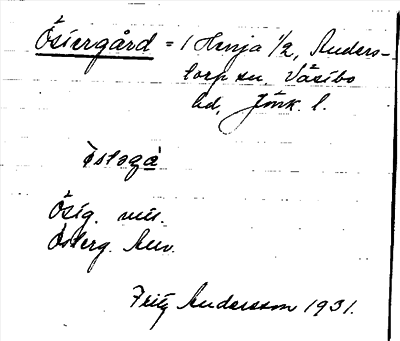 Östergård = 1 Henja 1/2, Anders-
torp sn, Västbo
hd, Jönk. l.
östəgå
Östg. mtl.
Österg. Anv.
Fritz Andersson 1931.